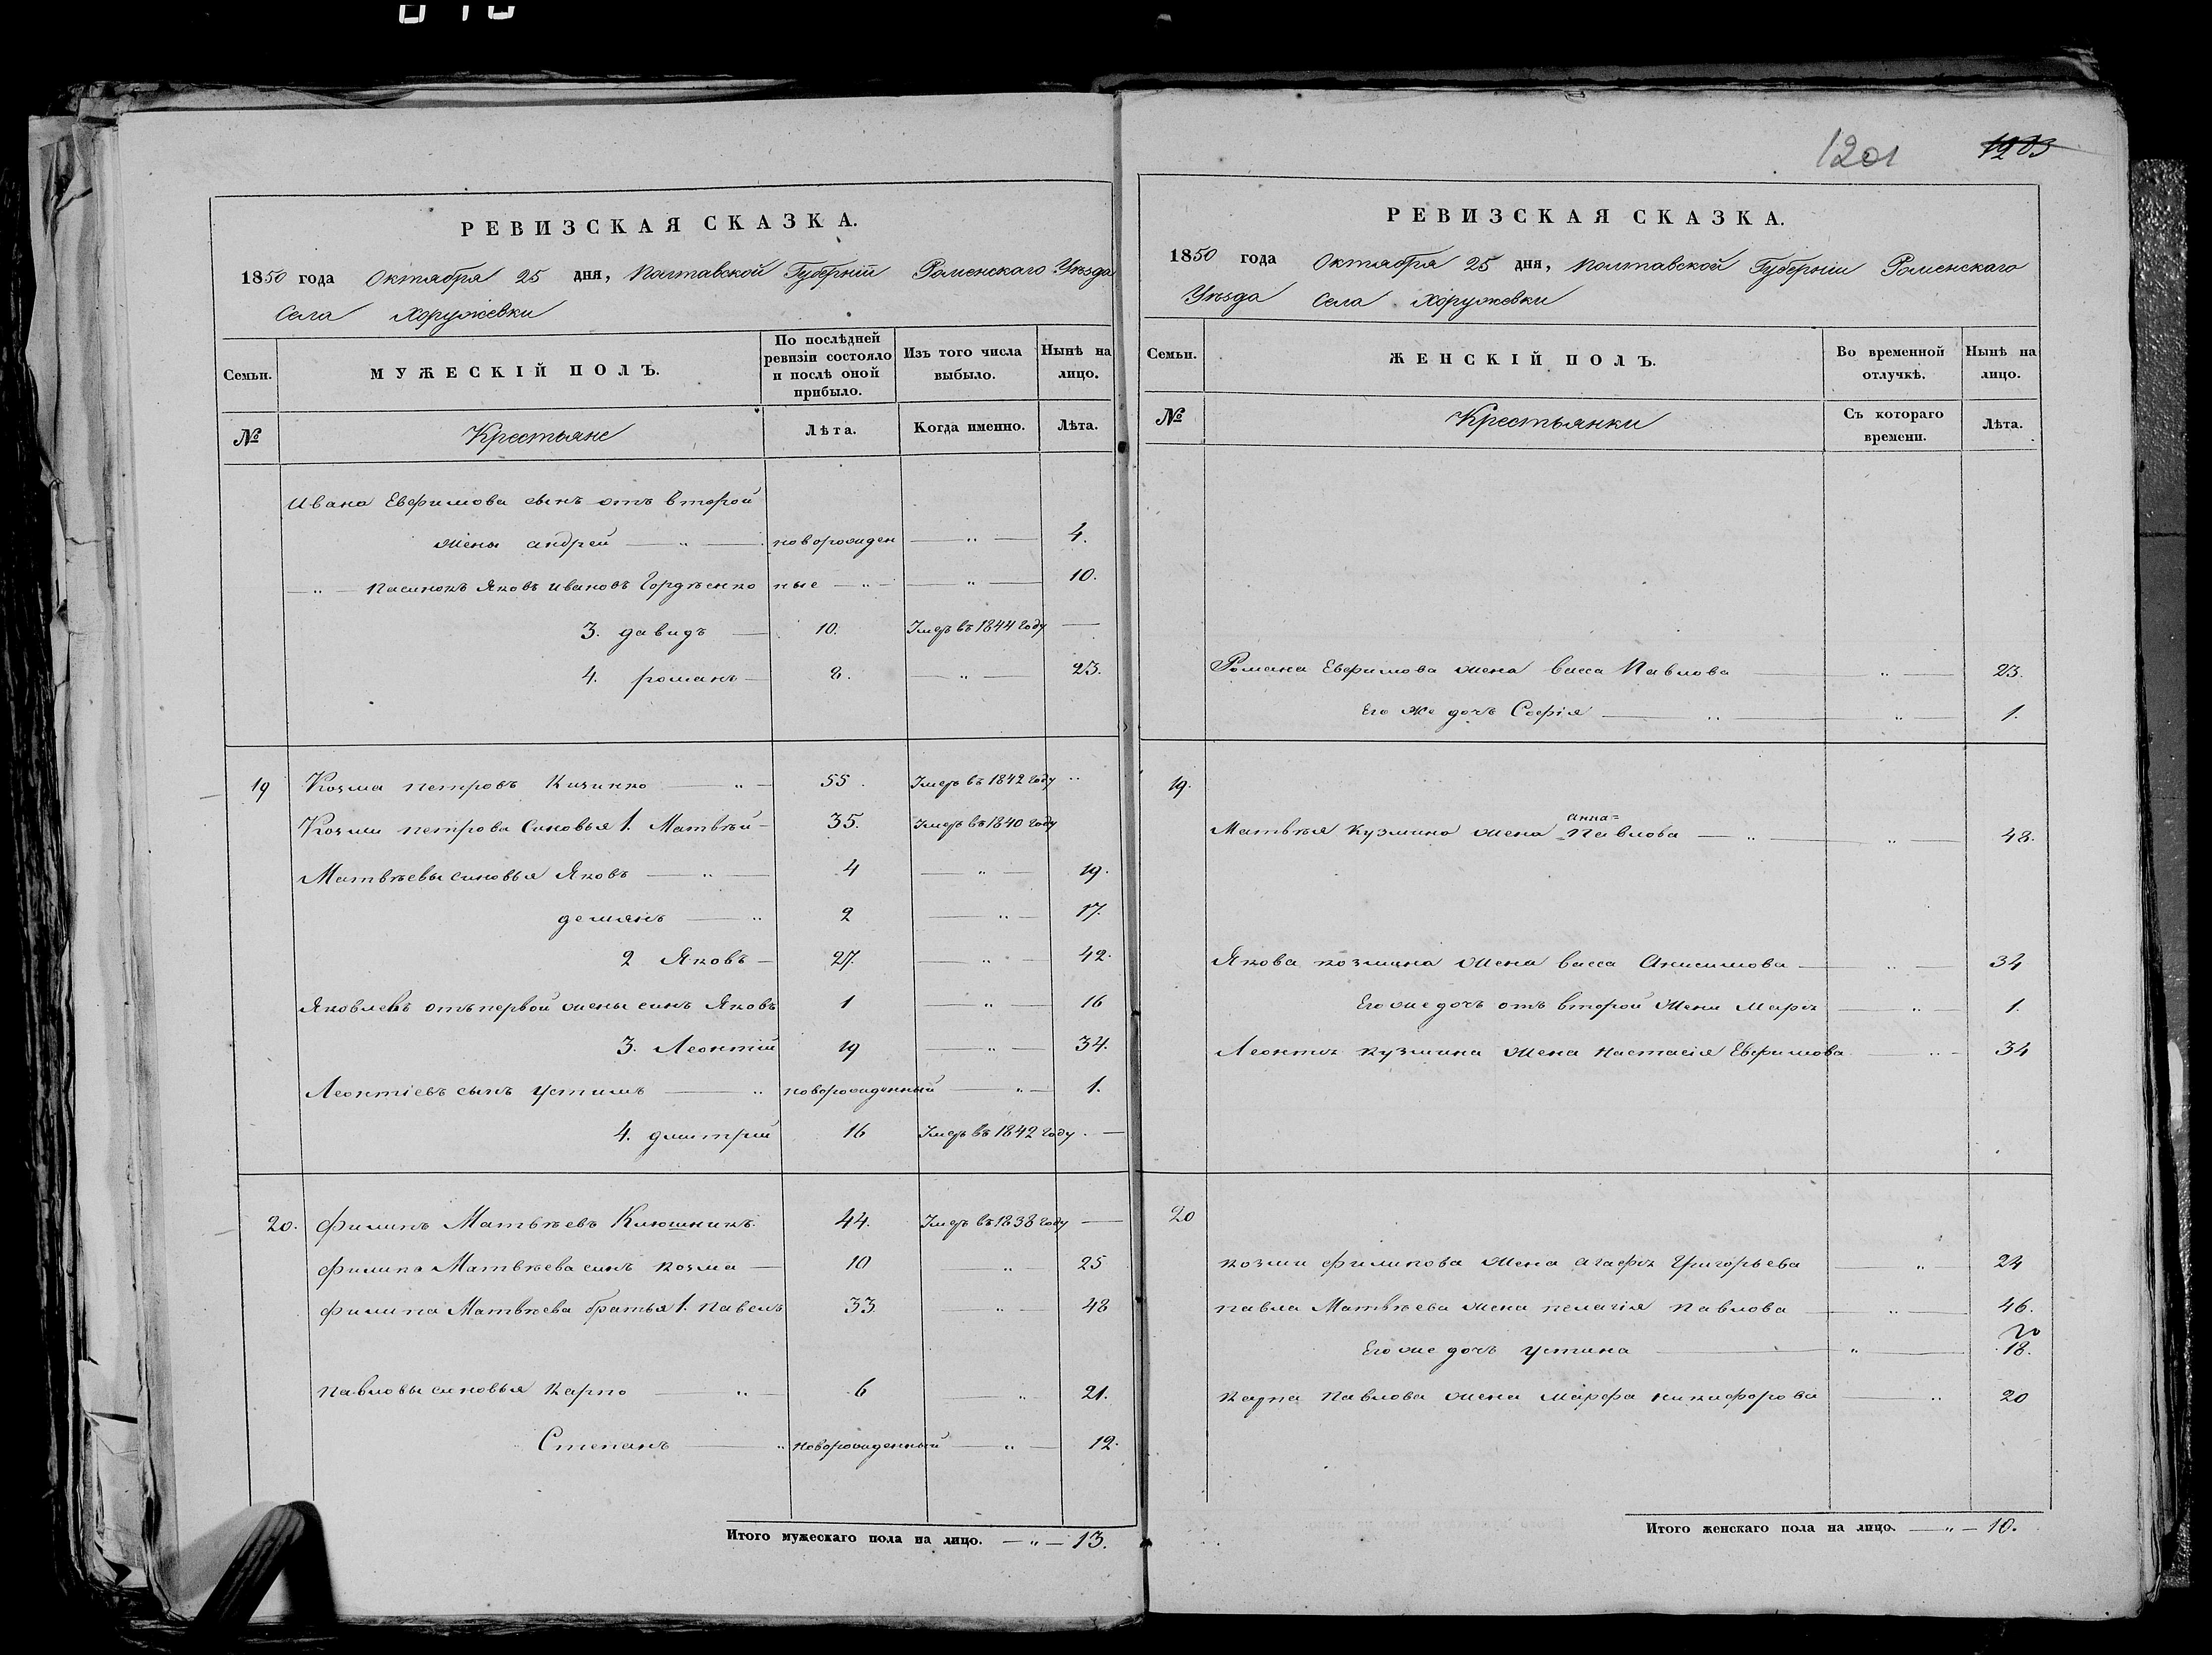 РЕВИЗСКАЯ СКАЗКА.
1850 года Октября 25 дня, Полтавской Губерніи Роменскаго Уѣзда
Села Хоружевки
Семьи.
МУЖЕСКІЙ ПОЛЪ.
По послѣдней ревизіи состояло и послѣ оной прибыло.
Изъ того числа выбыло.
Нынѣ на лицо.
№ Крестьяне Лѣта. Когда именно. Лѣта.
Ивана Евфимова сынъ отъ второй
жены андрей — „ — новорожден — „ — 4.
— „ — пасинокъ Яковъ Ивановъ Гордѣенко ные — „ — — „ — 10.
3. давидъ — 10. Умеръ въ 1844 году —
4. романъ — 8. — „ — 23.
19 Козма петровъ Кизинко — „ — 55. Умеръ въ 1842 году „
Козми петрова синовья 1. Матвѣй — 35. Умеръ въ 1840 году
Матвѣевы синовья Яковъ — „ — 4 — „ — 19.
демянъ — „ 2 — „ — 17.
2 Яковъ — 27. — „ — 42.
Яковлевъ отъ первой жены синъ Яковъ 1 — „ — 16
3. Леонтій 19 — „ — 34.
Леонтіевъ сынъ Устимъ — „ новорожденный — „ — 1.
4. дмитрій 16 Умеръ въ 1842 году. —
20. Филипъ Матвѣевъ Клюшникъ 44. Умеръ въ 1838 году —
Филипа Матвѣева синъ козма — 10 — „ — 25
Филипа Матвѣева братья 1. павелъ 33 — „ — 48
павловы синовья карпо — „ — 6 — „ 21.
Степанъ — „ новорожденный — „ — 12.
Итого мужескаго пола на лицо. — „ — 13.
1201 1203
РЕВИЗСКАЯ СКАЗКА.
1850 года Октября 25 дня, Полтавской Губерніи Роменскаго
Уѣзда Села Хоружевки
Семьи.
ЖЕНСКІЙ ПОЛЪ.
Во временной отлучкѣ.
Нынѣ на лицо.
№ Крестьянки Съ котораго времени. Лѣта.
Романа Евфимова жена васса Павлова — „ — 23.
Его же дочь Софія — „ — „ — 1.
19.
анна=
Матвѣя Кузмина жена Павлова — „ — „ — 48.
Якова козмина жена васса Анисимова — „ — 34
Его же дочь отъ второй жени — „ — 1.
Кузмина жена настасія Евфимова — „ — 34
20
козми филипова жена Григорьева — „ — 24
павла Матвѣева жена пелагія павлова — „ — 46.
20
Его же дочь устина — „ — 18.
Карпа Павлова жена марфа никифорова — „ 20
Итого женскаго пола на лицо. — „ — 10.